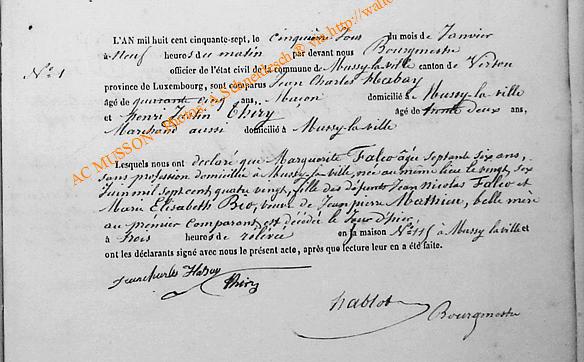 L'AN mil huit cent cinquante-sept, le cinquième jour du mois de Janvier
à Neuf heures du matin par devant nous Bourgmestre
officier de l'état civil de la commune de Mussy-la-ville canton de Virton
N° 1
province de Luxembourg, sont comparus Jean Charles Habay
âgé de quarante cinq ans, Maçon domicilié à Mussy-la-ville
et henri Justin Thiry âgé de trente deux ans,
Marchand aussi domicilié à Mussy-la-ville
Lesquels nous ont déclaré que Marguerite Falco âgée septante six ans,
sans profession domiciliée à Mussy-la-ville, née au même lieu le vingt, six
Juin mil sept cent, quatre vingt, fille des défunts Jean Nicolas Falco et
Marie Elisabeth Bio, veuve de Jean pierre Mathieu, belle mère
au premier Comparant, est décédée le Jour d'hier,
à trois heures de relevée en sa maison N° à Mussy la ville et
ont les déclarants signé avec nous le présent acte, après que lecture leur en a été faite.
Jean Charles Habay
Thiry
hablot
Bourgmestre
AC MUSSON - Photos: Schneidesch ® via http://